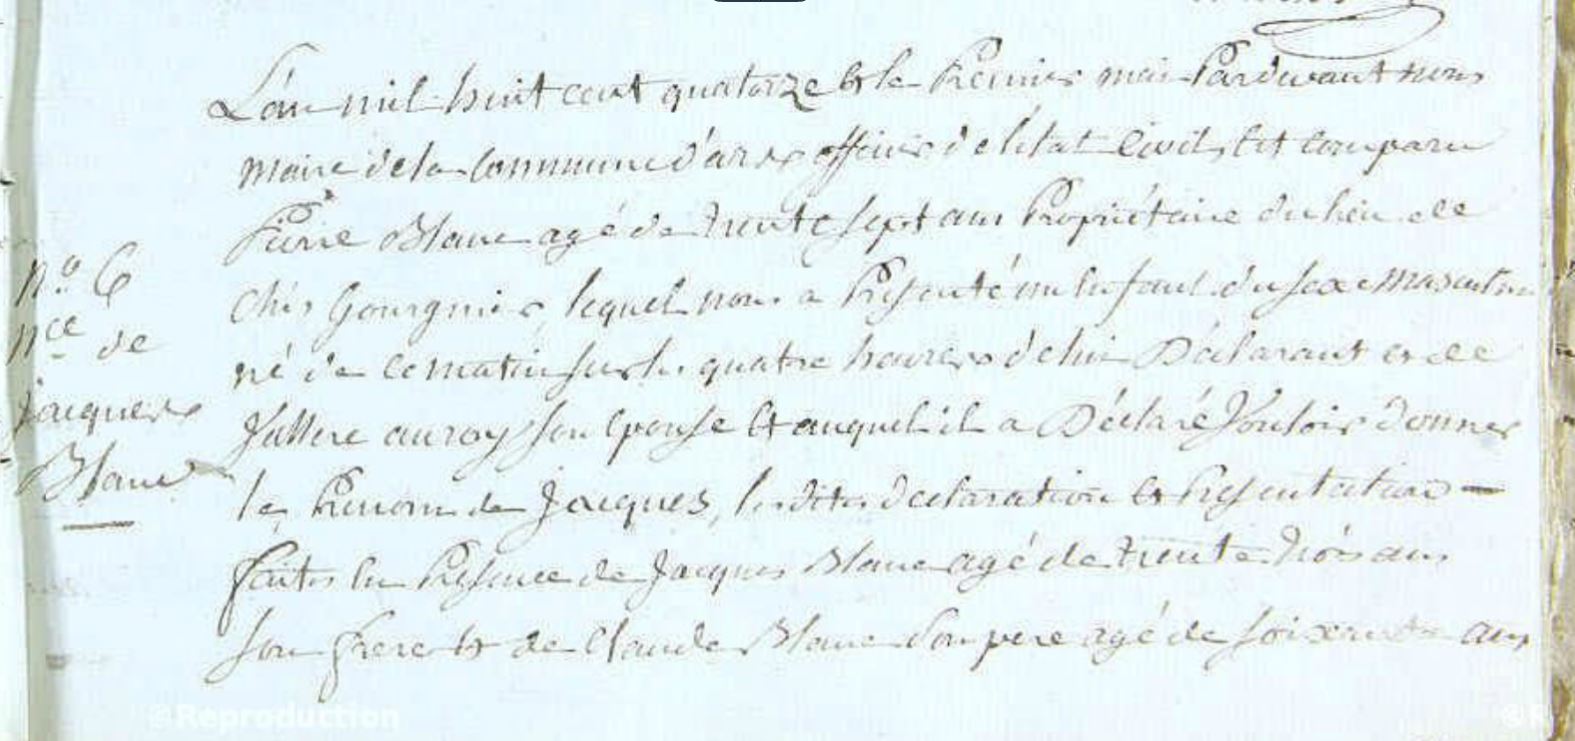 L'an mil huit cent quatorze & le Premier mai Pardevant nous
maire de la Commune d'arx officier de l'état Civil, Est comparu
Pierre Blanc agé de trente sept ans Propriétaire du lieu de
chés lequel nous a Présenté un Enfant du sexe Masculin
né de ce matin sur les quatre heures de lui Déclarant et de
auroy son Epouse & auquel il a Déclaré Vouloir donner
le Prenom de Jacques, lesdites declaration & Présentation —
faites En Présence de Jacques Blanc agé de trente trois ans
son frere & de Claude Blanc son pere agé de soixante ans
n.º 6
nce de
jacques
Blanc
©Reproduction
©R